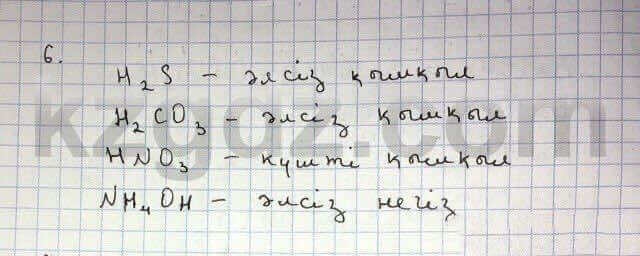 6.
H₂S – әлсіз қышқыл
H₂CO₃ – әлсіз қышқыл
HNO₃ – күшті қышқыл
NH₄OH – әлсіз негіз
kzgdz.com